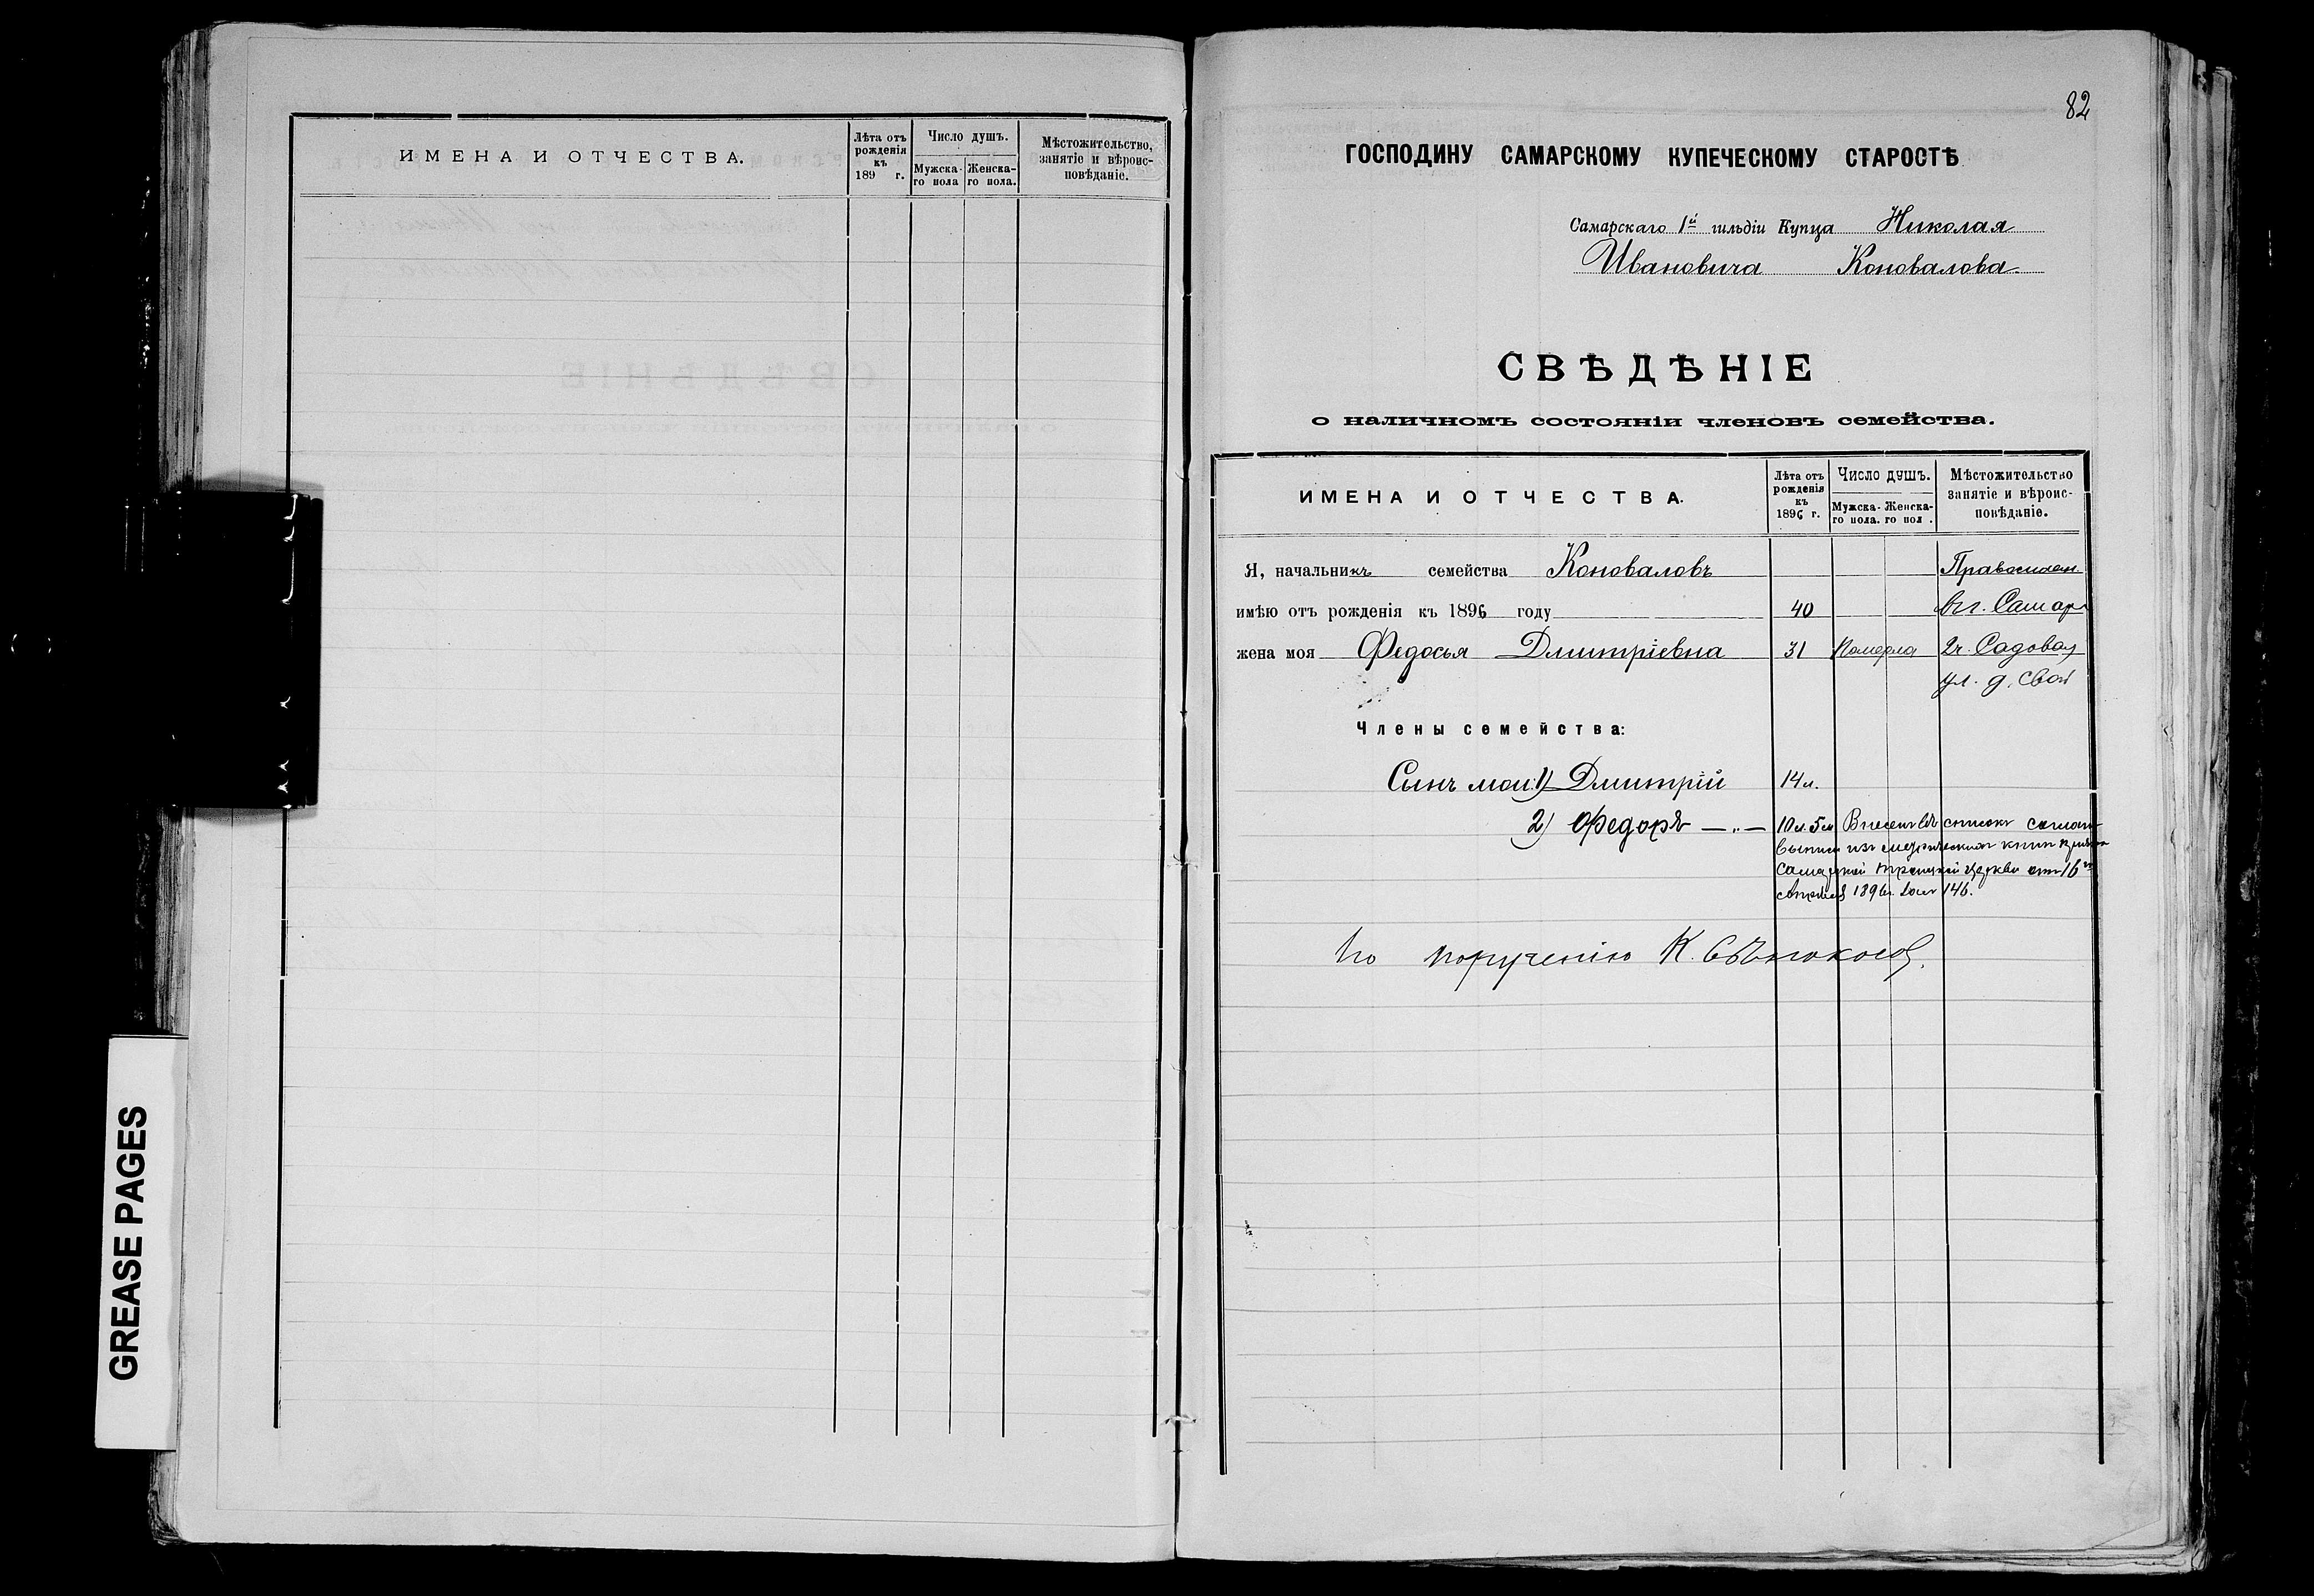 ИМЕНА И ОТЧЕСТВА.
Лѣта отъ рожденія къ 189 г.
Число душъ.
Мужска-го пола
Женска-го пола.
Мѣстожительство, занятіе и вѣроис-повѣданіе.
GREASE PAGES
82
ГОСПОДИНУ САМАРСКОМУ КУПЕЧЕСКОМУ СТАРОСТѢ
Самарскаго 1й гильдіи Купца Николая
Ивановича Коновалова
СВѢДѢНІЕ
о наличномъ состояніи членовъ семейства.
ИМЕНА И ОТЧЕСТВА.
Лѣта отъ рожденія къ 1896 г.
Число душъ.
Мужска-го пола.
Женска-го пол .
Мѣстожительство занятіе и вѣроис-повѣданіе.
Я, начальникъ семейства Коноваловъ
имѣю отъ рожденія къ 1896 году 40 въ г. Самар
жена моя Федосья Дмитріевна 31 Померла 2ч. Садовая
ул. д. свой
Члены семейства:
Сынъ мои: 1) Дмитрій 14 л.
2) Федоръ —„— 10 л. 5 м Внесенъ въ списокъ
изъ метрическихъ книгъ
Самарской Троицкой церкви отъ 16го
1896 г. 146.
По порученію К.